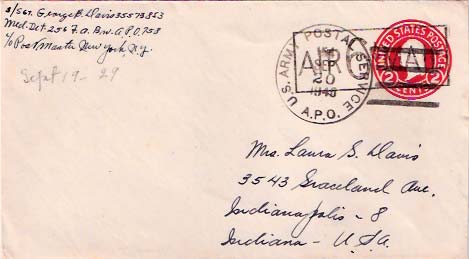 S/Sgt. George B. Davis 35573853
Med. Det. 256 F.a. Bn. A.P.O. 758
c/o Postmaster New York, N.Y.
Sept 19 - 29
U.S. ARMY POSTAL SERVICE
SEP
20
1945
A.P.O.
AIR MAIL
UNITED STATES POSTAGE
2 2
CENTS
Mrs. Laura S. Davis
3543 Graceland Ave.
Indianapolis - 8
Indiana - U.S.A